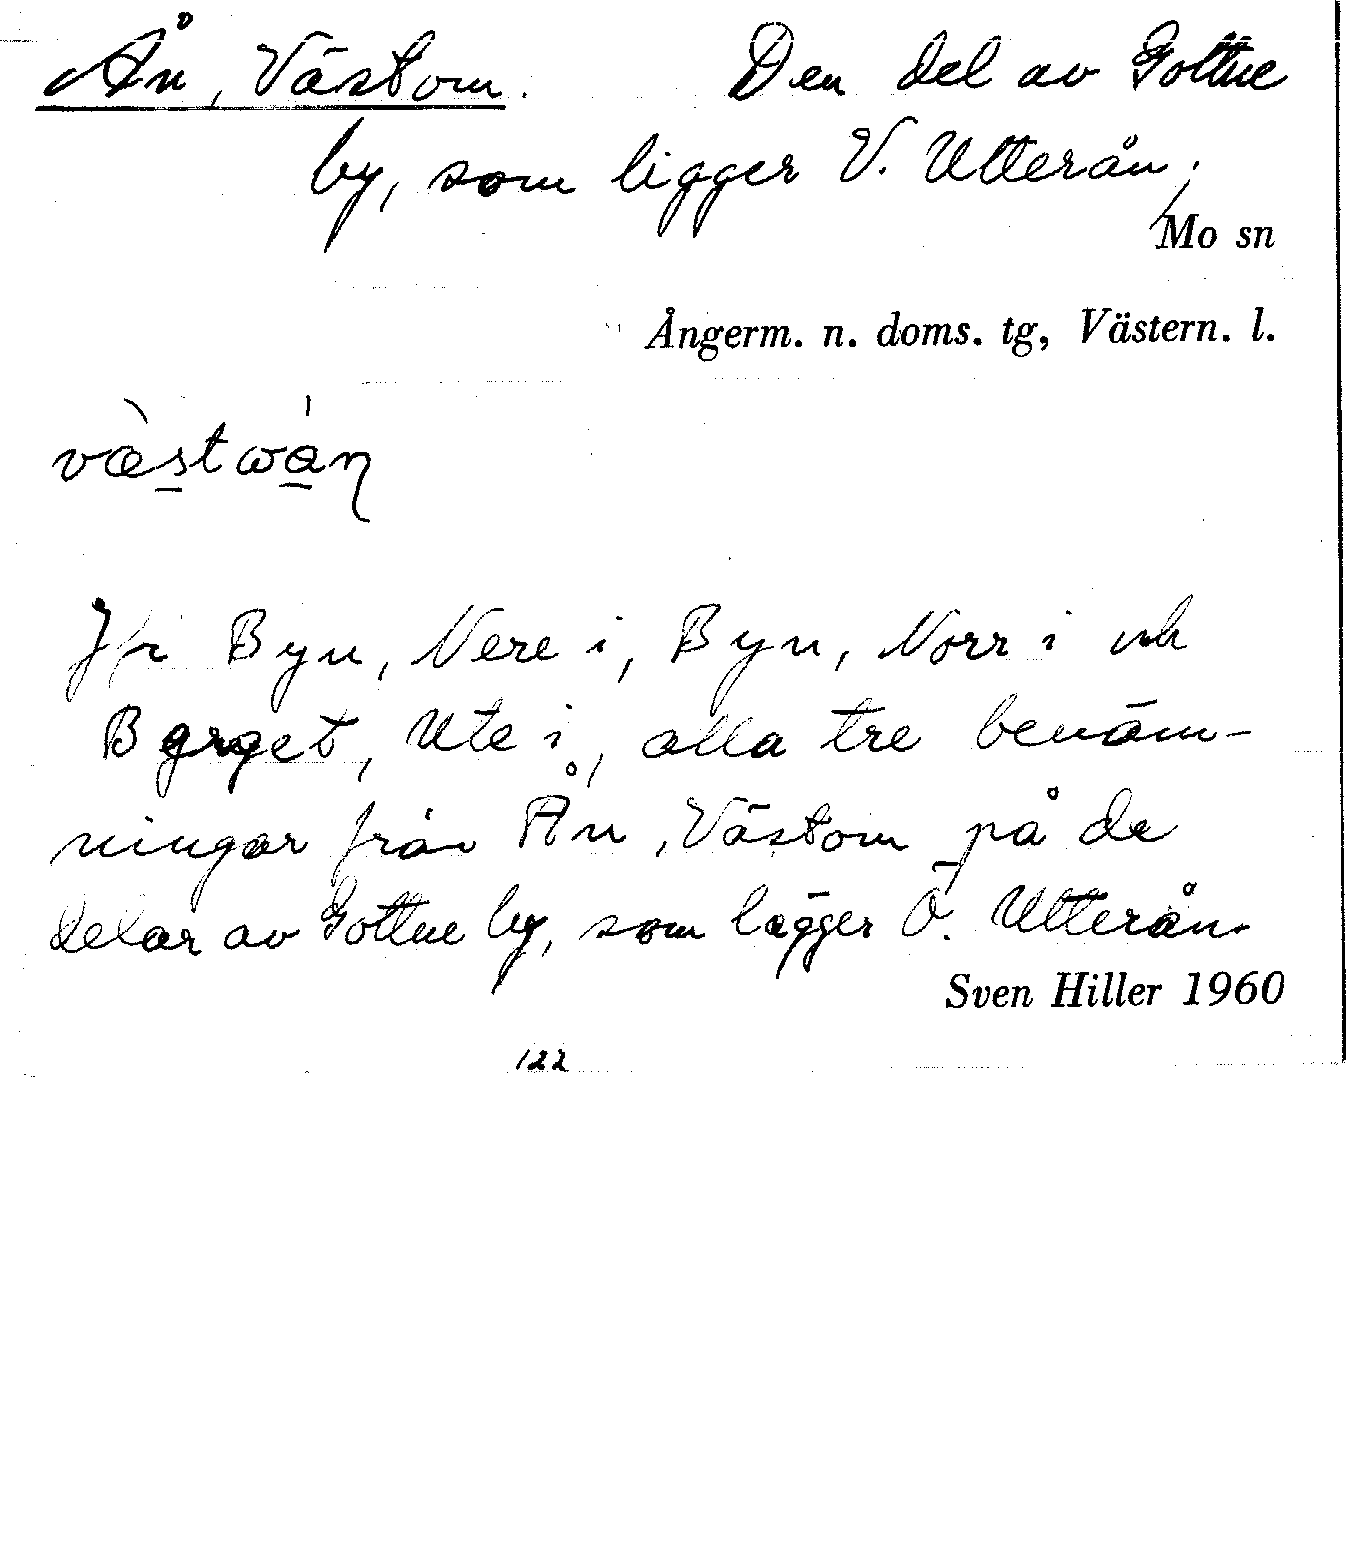 Ån, Västom. Den del av Gottne
by, som ligger V. Utterån,
Mo sn
Ångerm. n. doms. tg, Västern. l.
væ̀stωán
Jfr Byn, Nere i, Byn, Norr i och
Berget, Ute i, alla tre benäm-
ningar från Ån, Västom på de
delar av Gottne by, som ligger Ö. Utterån.
Sven Hiller 1960
122